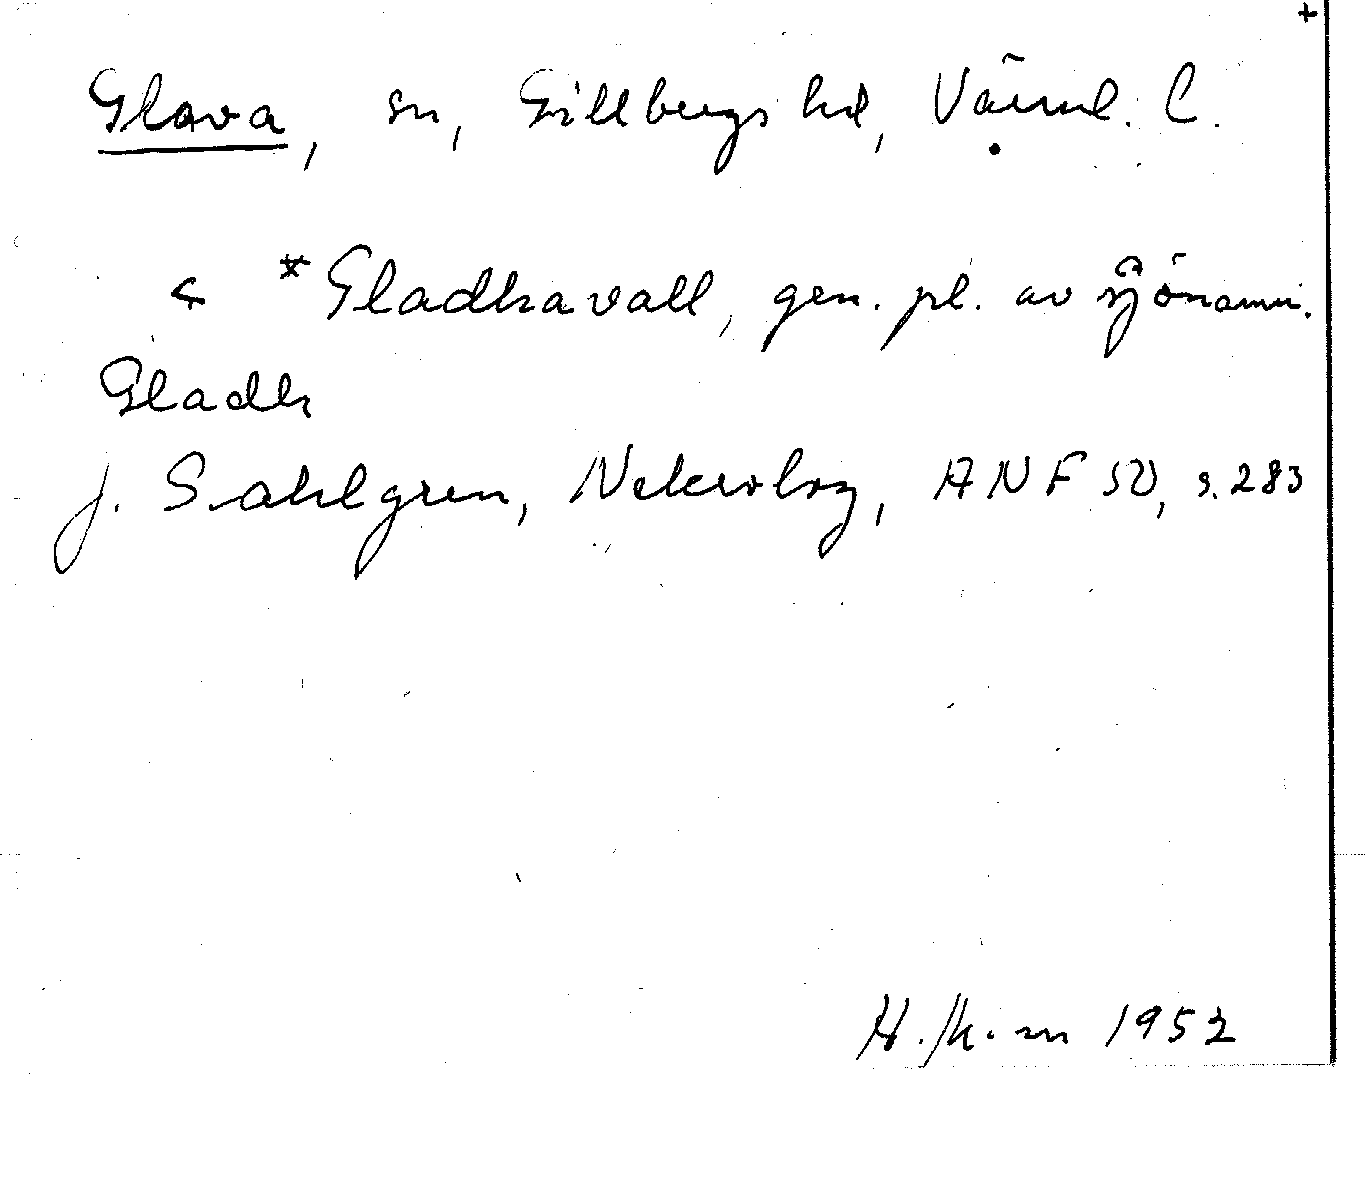 +
Glava, sn, Gillbergs hd, Värml. l.
< *Gladhavall, gen. pl. av sjönamn.
Gladh
J. Sahlgren, Nekrolog, ANF 50, s. 283
1952